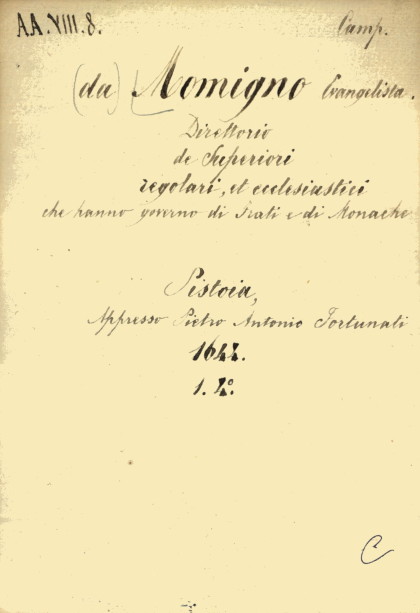 A.A.VIII.8. Camp.
(da) Momigno Evangelista.
Direttorio
de Superiori
regolari, et ecclesiastici
che hanno governo di Frati e di Monache
Pistoia,
Appresso Pietro Antonio Fortunati
1644.
1. 4º.
C